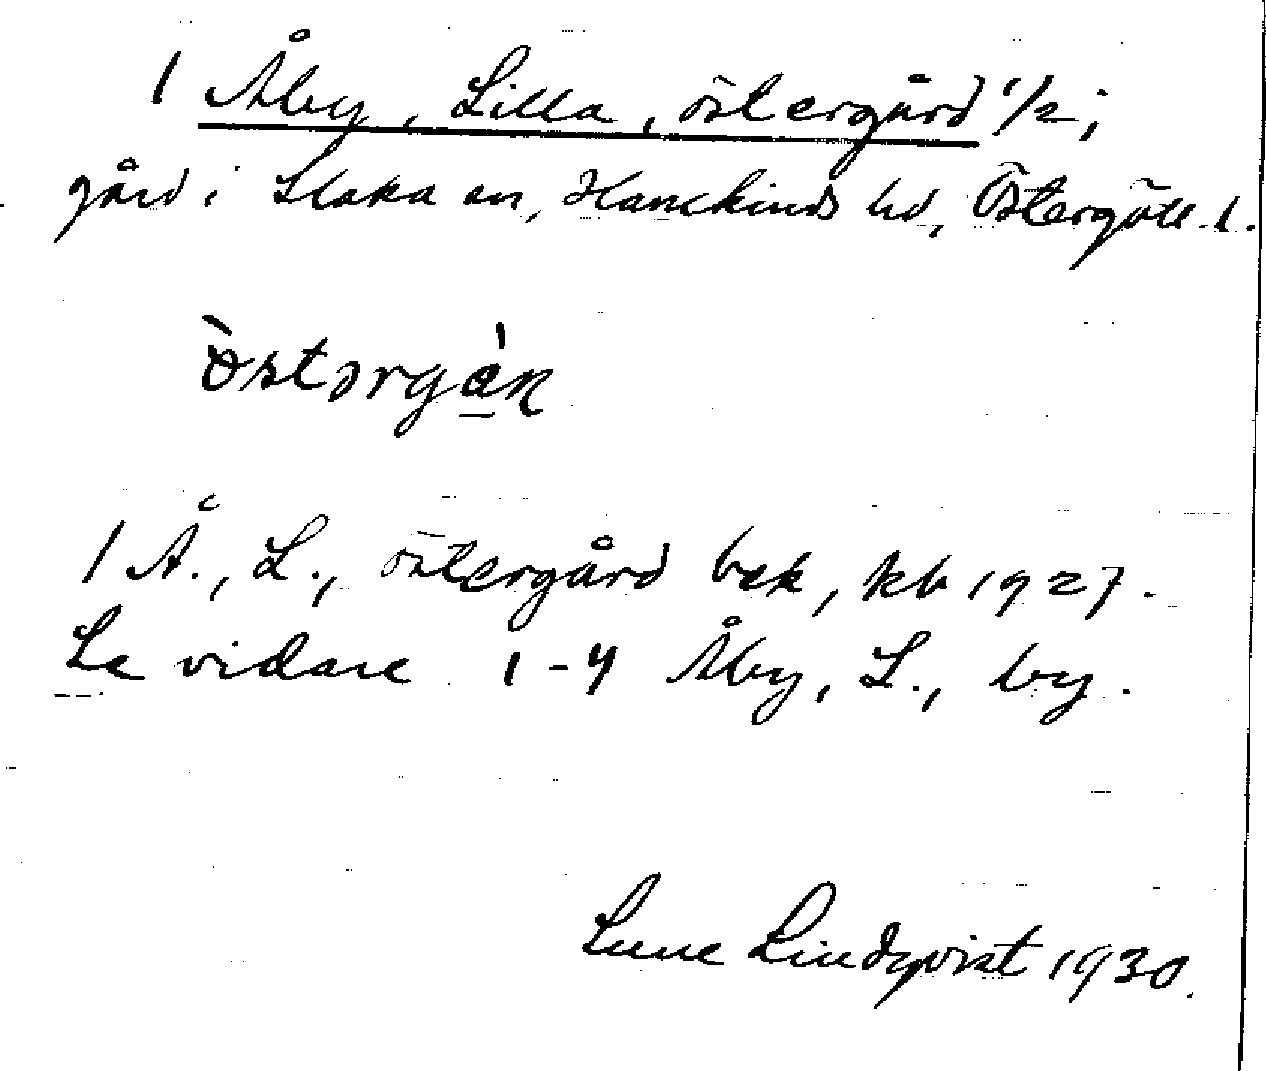 1 Åby, Lilla, östergård 1/2;
gård i Slaka sn, Hanekinds hd, Östergötl. l.
östərgá̱n
1 Å., L., östergård bek, kb 1927.
Se vidare 1-4 Åby, L., by.
Sune Lindqvist 1930.